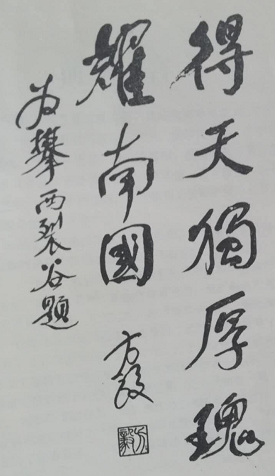 得天獨厚瑰
耀南國
為攀西裂谷題
方毅